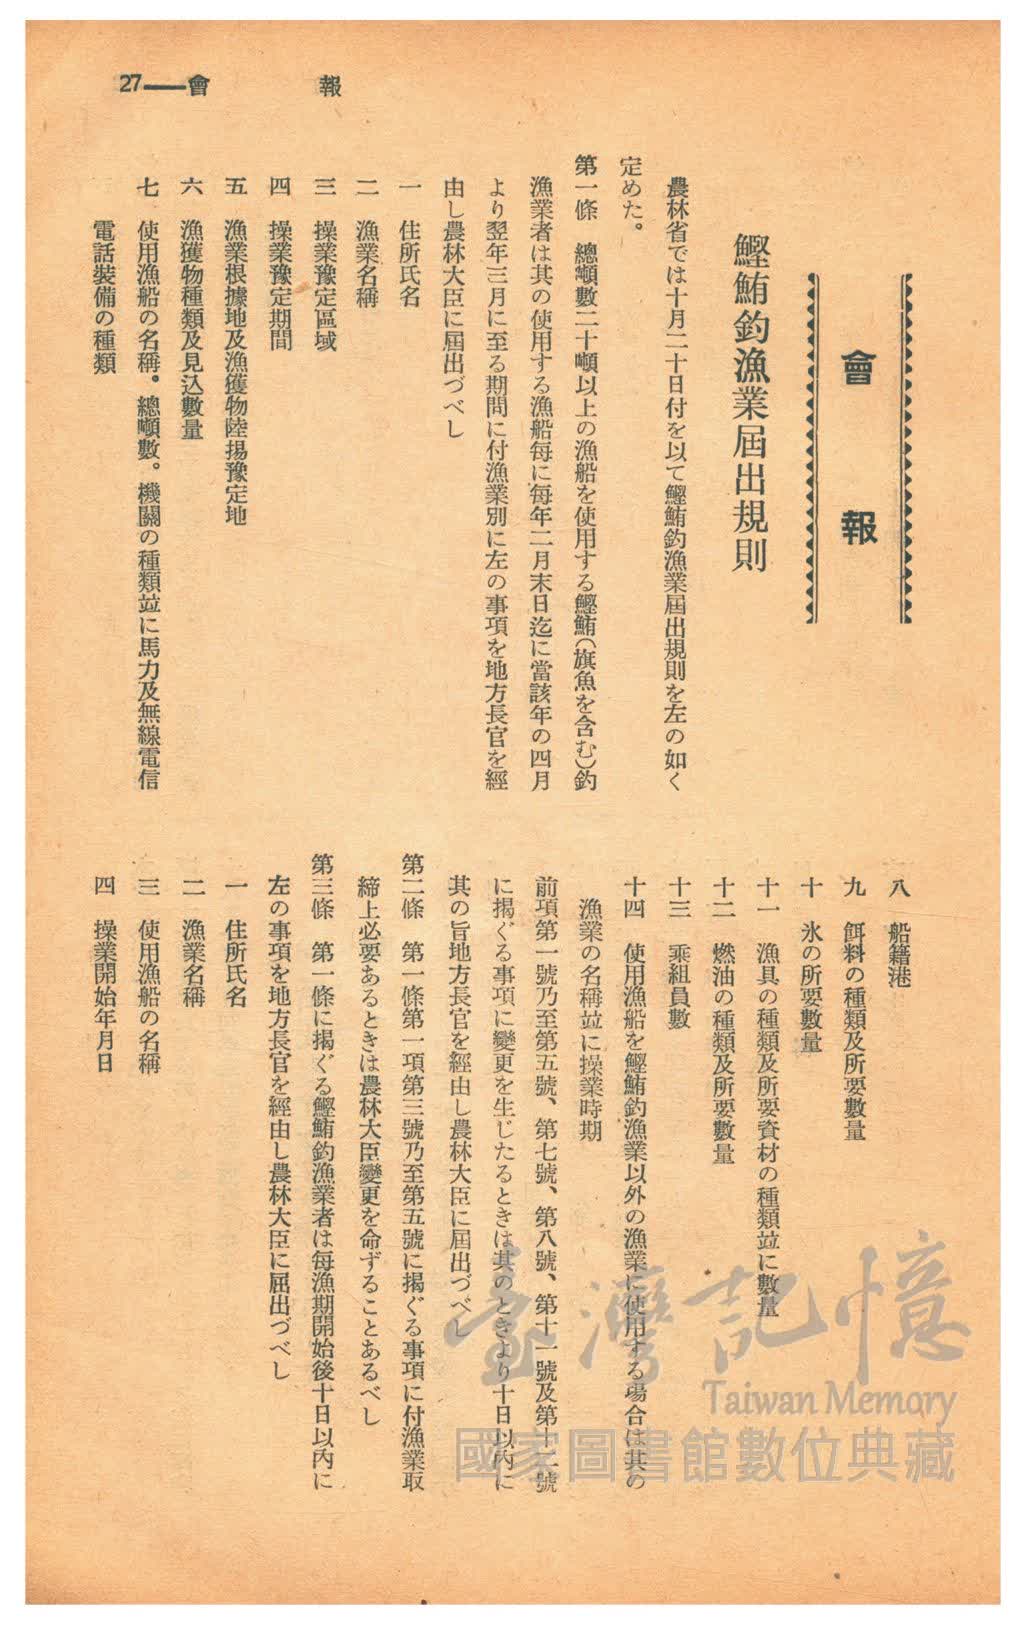 27——會　報
會報
鰹鮪釣漁業屆出規則
農林省では十月二十日付を以て鰹鮪釣漁業屆出規則を左の如く
定めた。
第一條　總噸數二十噸以上の漁船を使用する鰹鮪(旗魚を含む)釣
漁業者は其の使用する漁船每に每年二月末日迄に當該年の四月
より翌年三月に至る期間に付漁業別に左の事項を地方長官を經
由し農林大臣に屆出づべし
一　住所氏名
二　漁業名稱
三　操業豫定區域
四　操業豫定期間
五　漁業根據地及漁獲物陸揚豫定地
六　漁獲物種類及見込數量
七　使用漁船の名稱。總噸數。機關の種類竝に馬力及無線電信
電話裝備の種類
八　船籍港
九　餌料の種類及所要數量
十　氷の所要數量
十一　漁具の種類及所要資材の種類竝に數量
十二　燃油の種類及所要數量
十三　乘組員數
十四　使用漁船を鰹鮪釣漁業以外の漁業に使用する場合は其の
漁業の名稱竝に操業時期
前項第一號乃至第五號、第七號、第八號、第十一號及第十二號
に揭ぐる事項に變更を生じたるときは其のときより十日以內に
其の旨地方長官を經由し農林大臣に屆出づべし
第二條　第一條第一項第三號乃至第五號に揭ぐる事項に付漁業取
締上必要あるときは農林大臣變更を命ずることあるべし
第三條　第一條に揭ぐる鰹鮪釣漁業者は每漁期開始後十日以內に
左の事項を地方長官を經由し農林大臣に屆出づべし
一　住所氏名
二　漁業名稱
三　使用漁船の名稱
四　操業開始年月日
臺灣記憶
Taiwan Memory
國家圖書館數位典藏